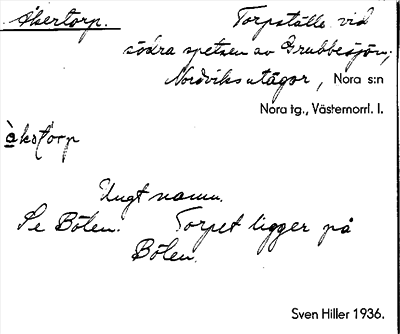 Åkertorp. Torpställe vid
södra spetsen av Grubbesjön;
Nordviks utägor, Nora s:n
Nora tg., Västernorrl. l.
àkətorp
Ungt namn.
Se Bölen. Torpet ligger på
Bölen.
Sven Hiller 1936.